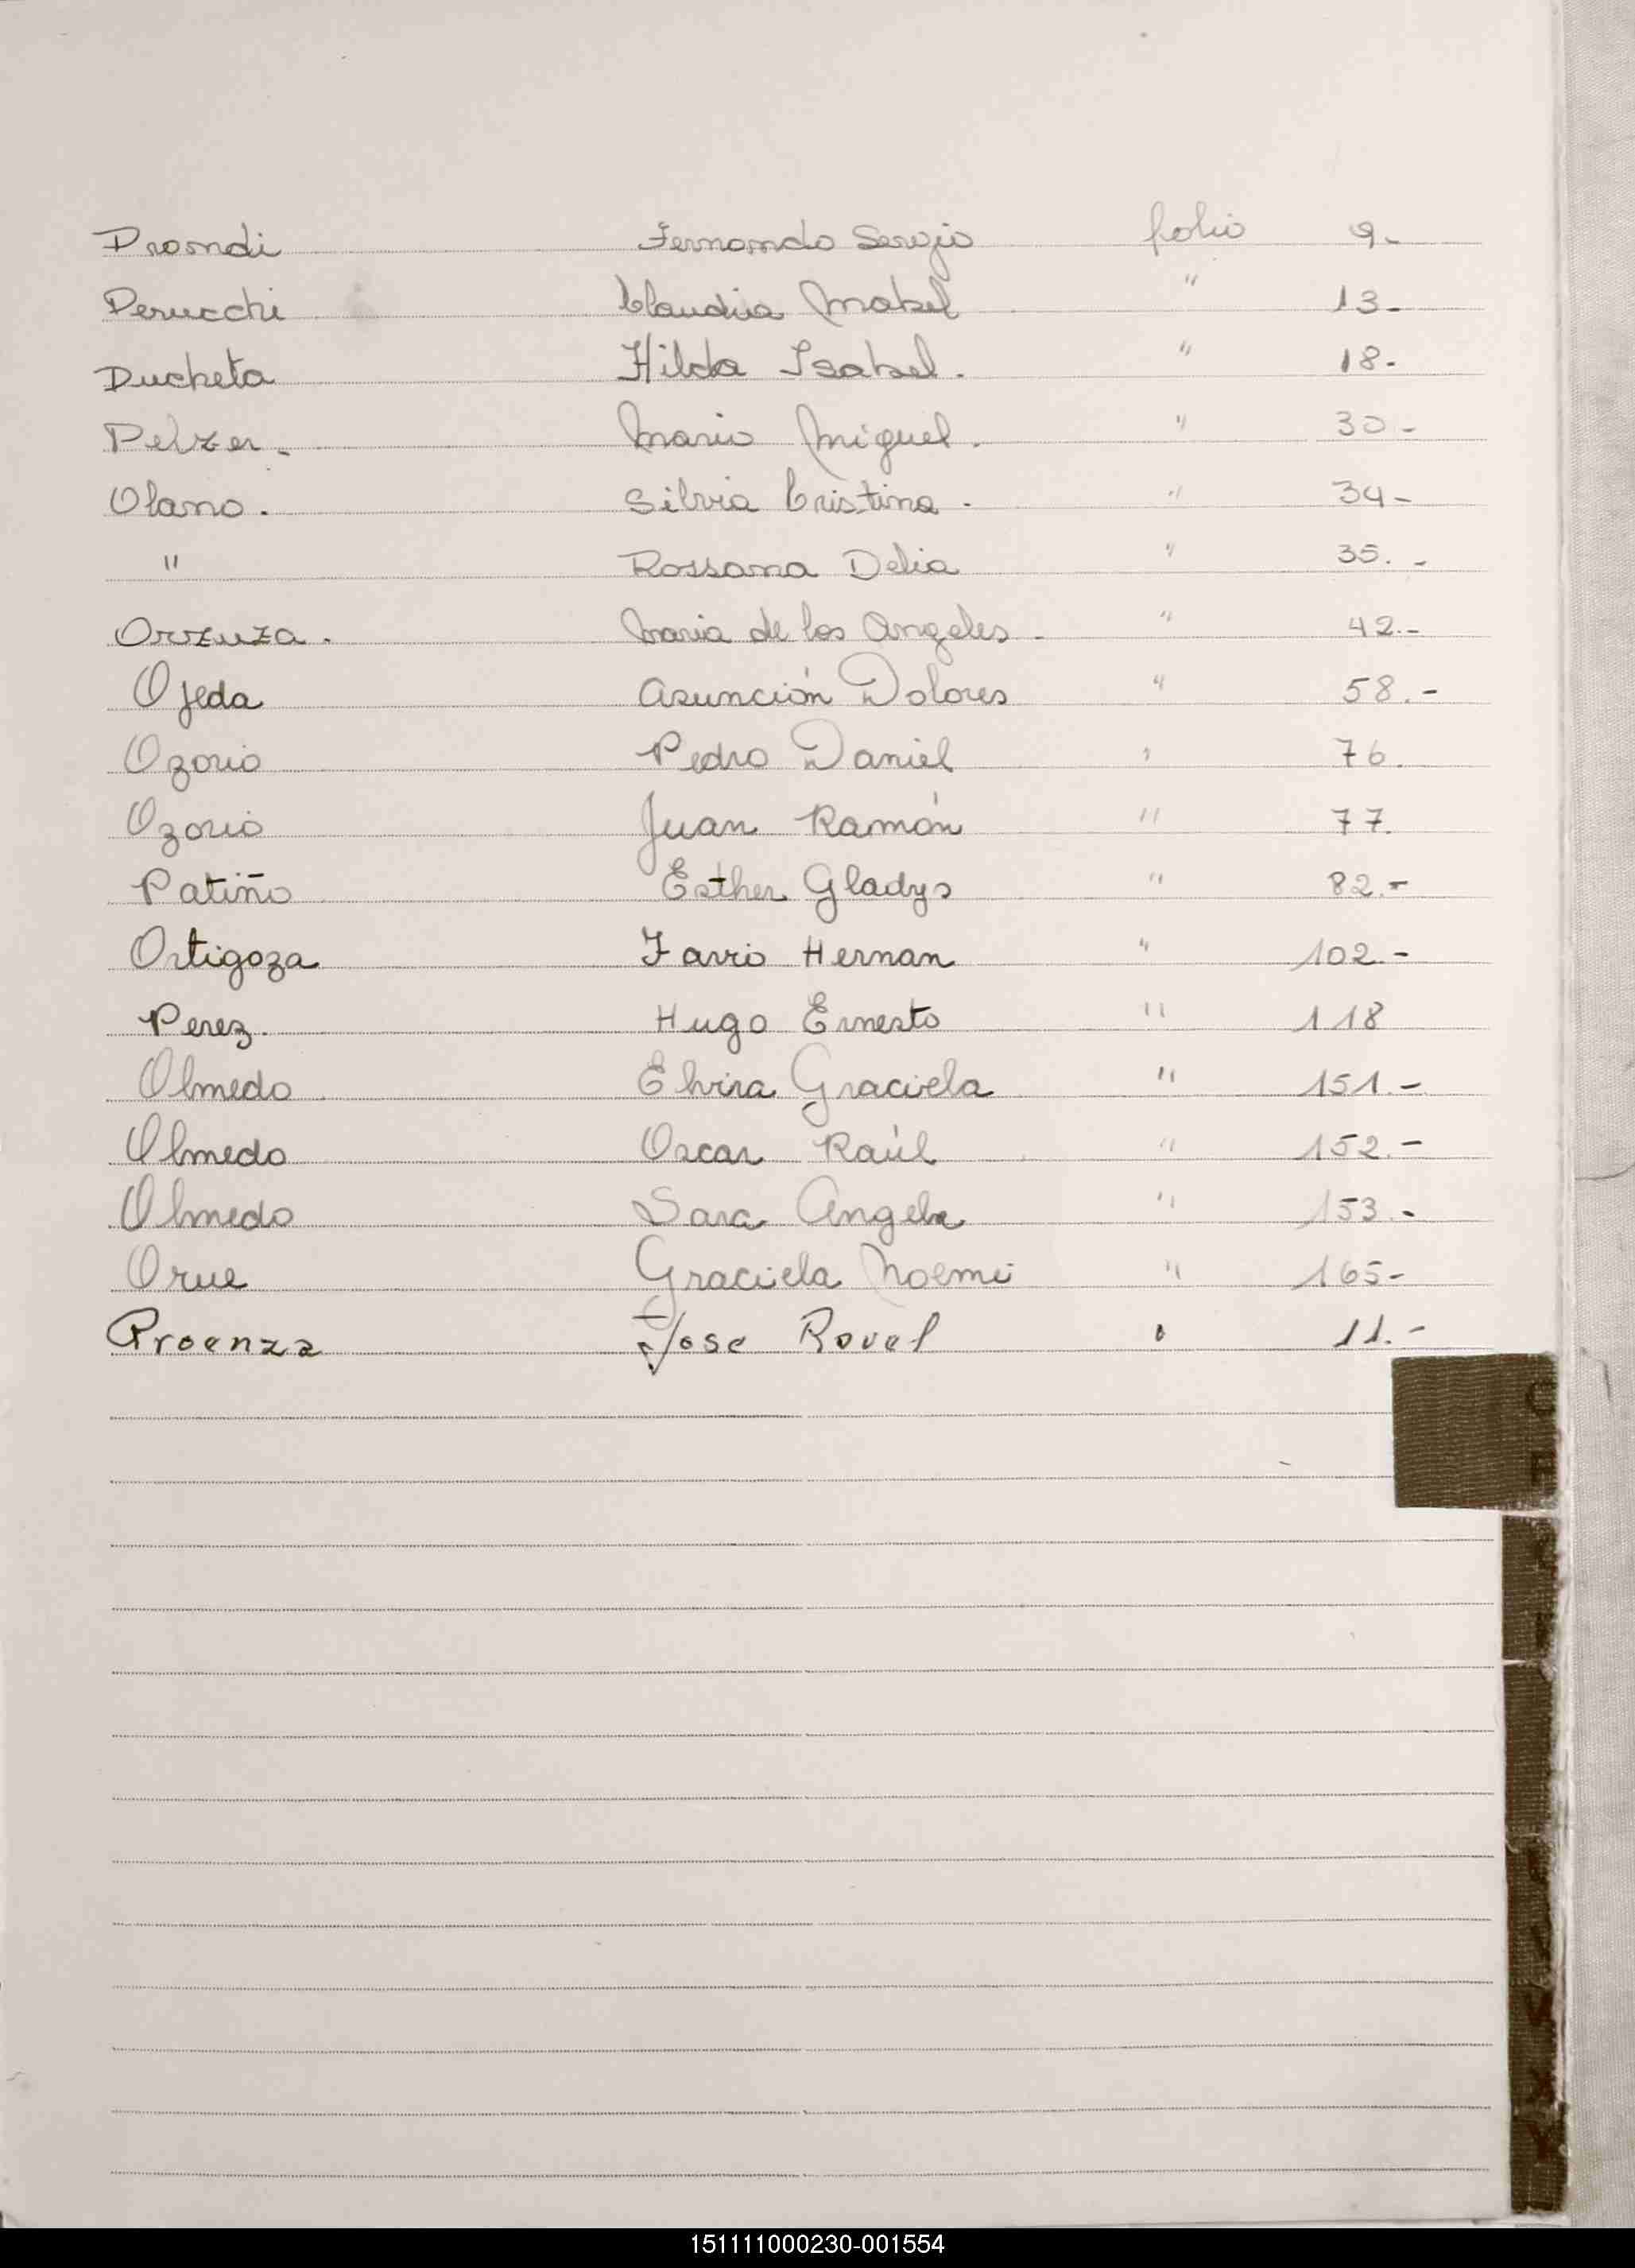 Prondi Fernando Sergio folio 9.-
Perucchi Claudia Mabel " 13.-
Pucheta Hilda Isabel. " 18.-
Pelzer. Mario Miguel. " 30.-
Olano. Silvia Cristina. " 34-
" Rossana Delia " 35.-
Orzuza. Maria de los Angeles - " 42.-
Ojeda Asunción Dolores " 58.-
Ozorio Pedro Daniel " 76.
Ozorio Juan Ramón " 77.
Patiño Esther Gladys " 82.-
Ortigoza Favio Hernan " 102.-
Perez. Hugo Ernesto " 118
Olmedo Elvira Graciela " 151.-
Olmedo Oscar Raúl " 152.-
Olmedo Sara Angela " 153.-
Orue Graciela Noemi " 165-
Proenza Jose " 11.-
151111000230-001554